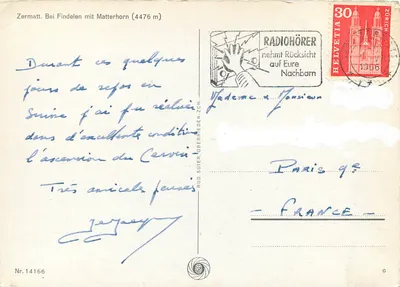 Zermatt. Bei Findelen mit Matterhorn (4476 m)
Durant ces quelques
jours de repos en
Suisse j'ai pu réaliser
dans d'excellente condition
l'ascension du Cervin
Très amicale pensée
Nr. 14166
RADIOHÖRER
nehmt Rücksicht
auf Eure
Nachbarn
30
HELVETIA
Madame & Monsieur
PARIS 9e
- FRANCE -
6